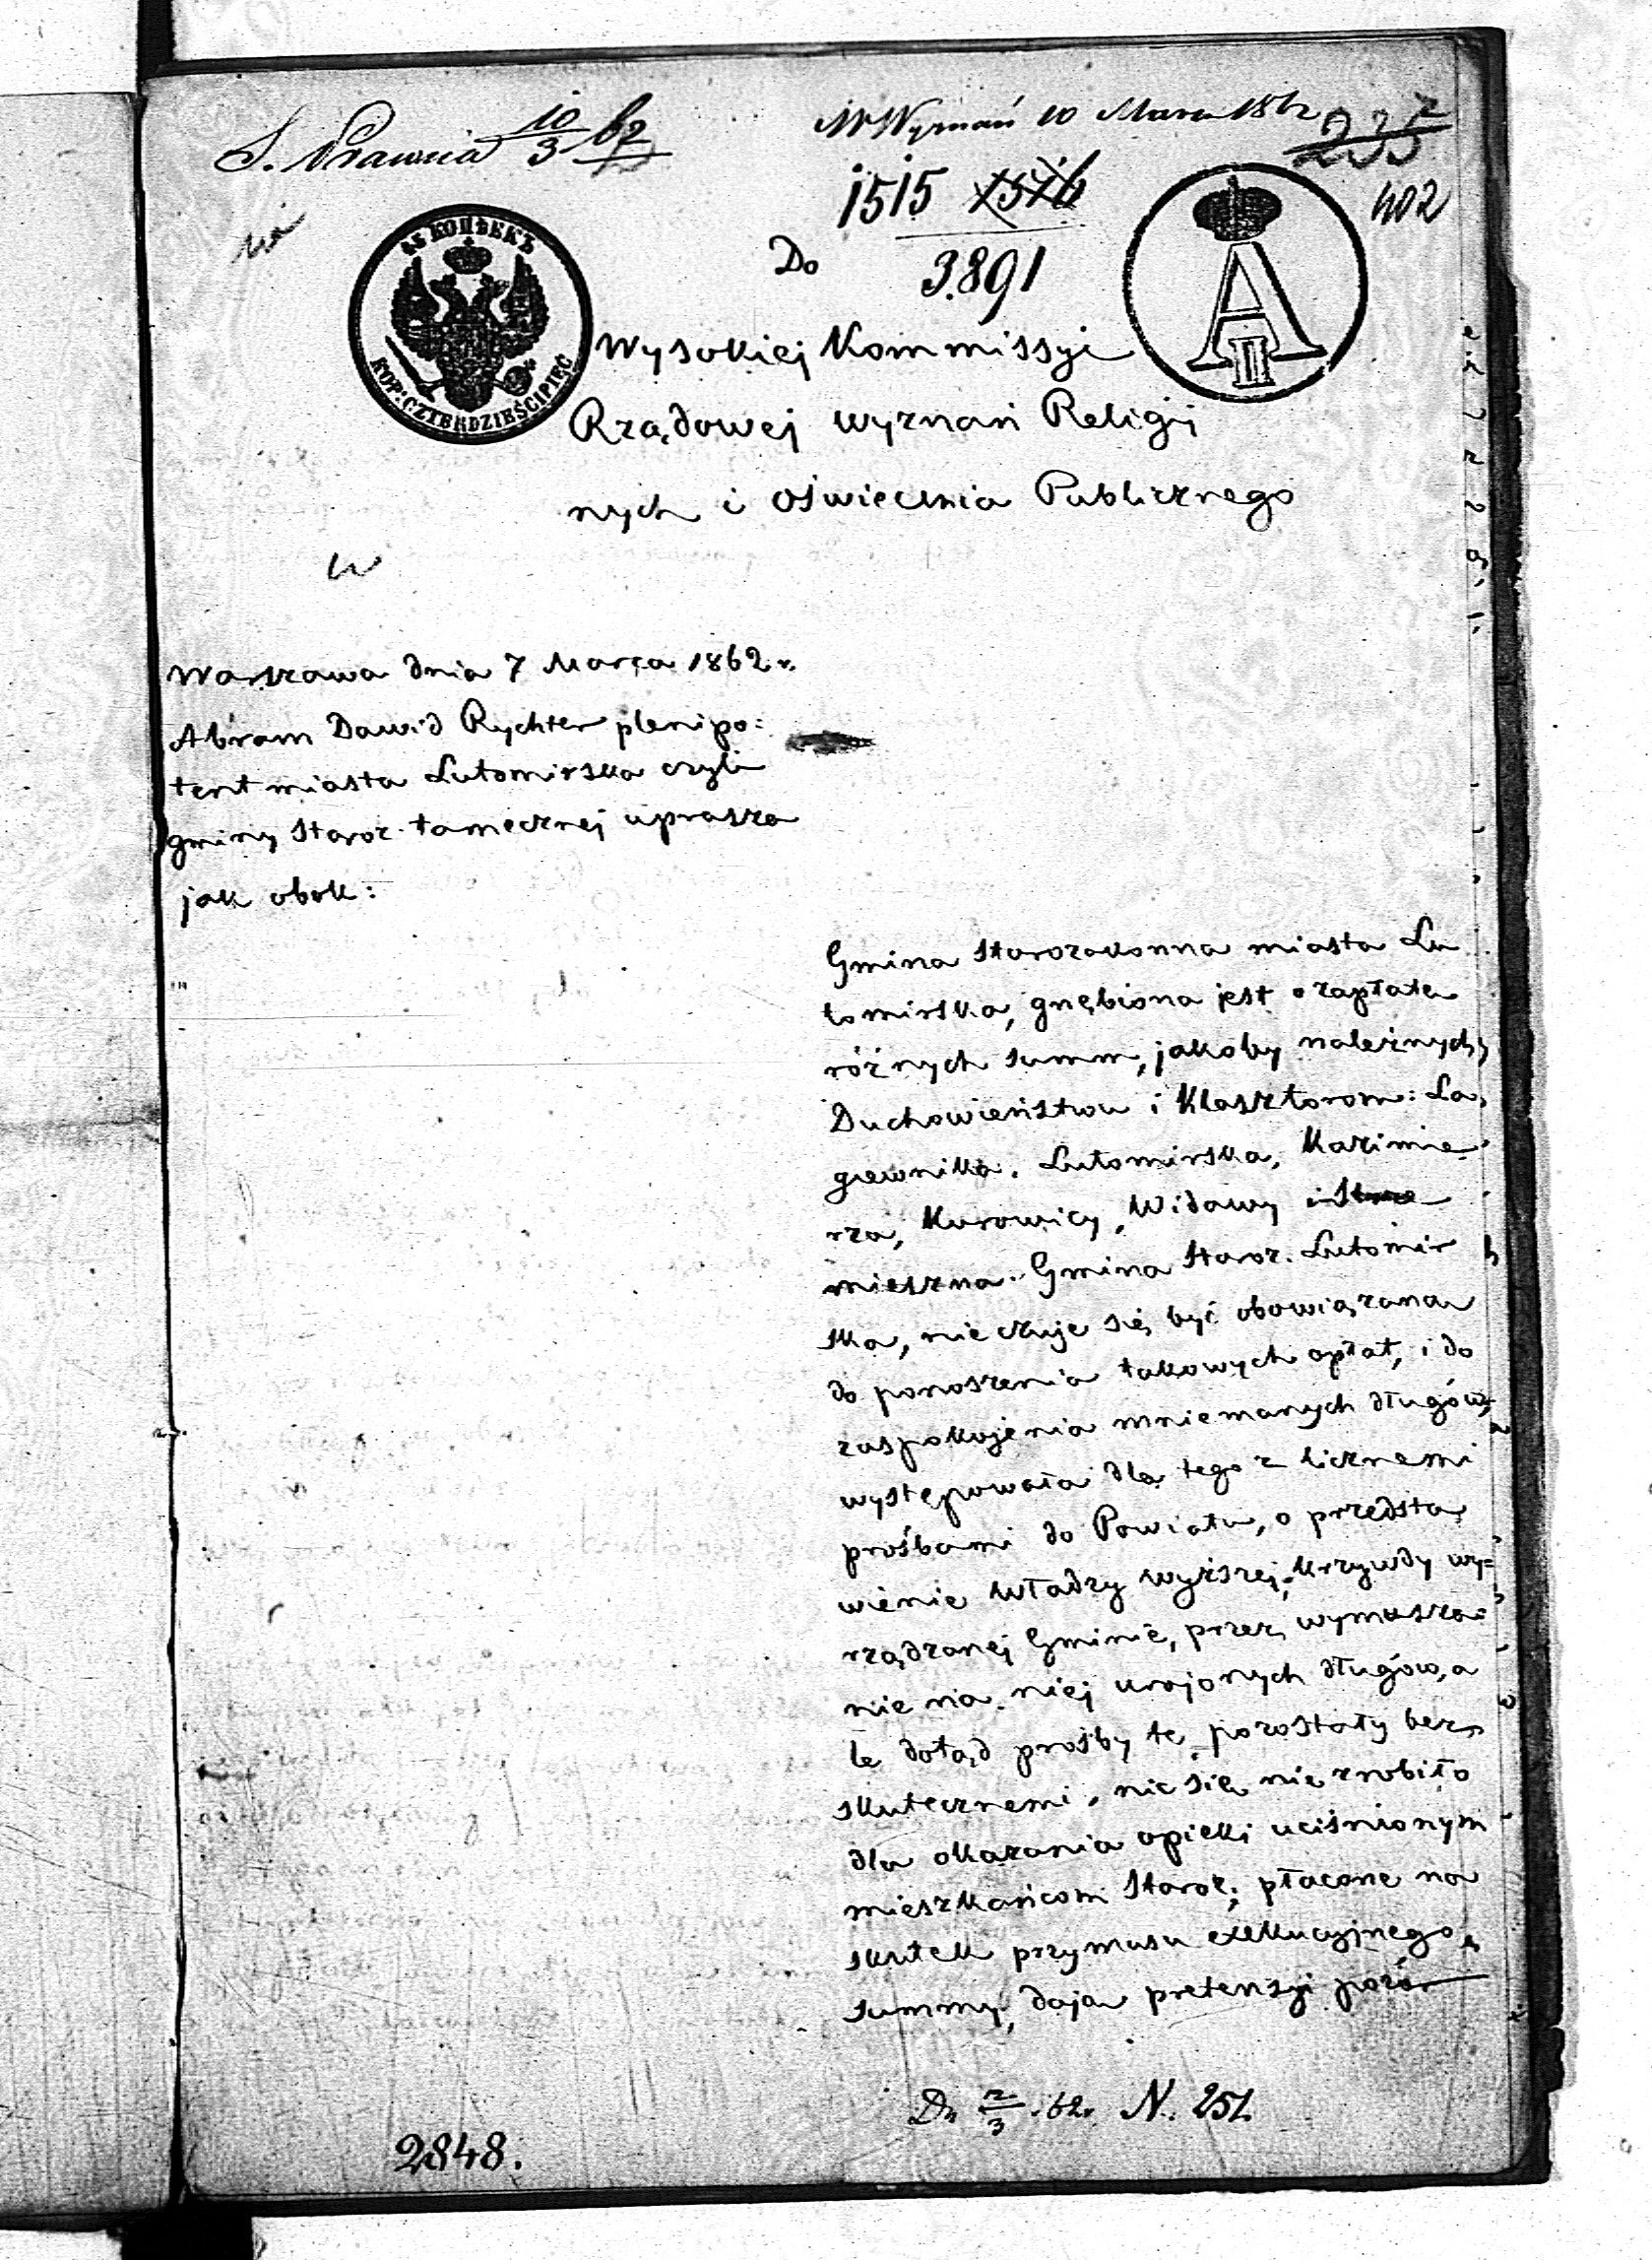 S. Prawnia 10/3 62
W Wyznań 10 Marca 1862
235
402
1515 1516
3.891
45 КОПѢЕКЪ
KOP: CZTERDZIEŚCI PIĘĆ
A II
Do
Wysokiej Kommissyi
Rządowej wyznań Religij
nych i Oświecenia Publicznego
w
Warszawa dnia 7 Marca 1862 r.
Abram Dawid Rychter plenipo:
tent miasta Lutomirska czyli
gminy Staroz. tamecznej uprasza
jak obok:
Gmina Starozakonna miasta Lu
tomirska, gnębiona jest o zapłatę
różnych summ, jakoby należnych
Duchowieństwu i Klasztorom: Ła
giewnika, Lutomirska, Kazimie
rza, Kurowicy, Widawy i
mieszna. Gmina Staroz. Lutomir
ska, nie czuje się być obowiązana
do ponoszenia takowych opłat, i do
zaspokojenia mniemanych długów,
występowała dla tego z licznemi
prośbami do Powiatu, o przedsta
wienie Władzy wyższej, krzywdy wy=
rządzanej Gminie, przez wymusza=
nie na niej urojonych długów, a
le dotąd prośby te pozostały bez
skutecznemi, nic się nie zrobiło
dla okazania opieki uciśnionym
mieszkańcom Staroz; płacone na
skutek przymusu exekucyjnego
summy, dają pretensyi pozór
Dn 7/3 62 r. N. 251.
2848.